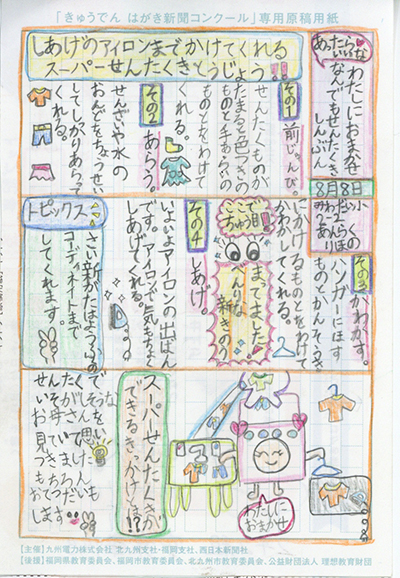 「きゅうでん はがき新聞コンクール」専用原稿用紙
しあげのアイロンまでかけてくれる
スーパーせんたくきとうじょう!!
あったらいいな
わたしにおまかせ
なんでもせんたくき
しんぶん
8月8日
その1
前じゅんび。
せんたくものが
よごれたまると色つきの
ものと手あらいの
ものとをわけて
くれる。
その2
あらう。
せんざいや水の
おんどをちょうせい
してしっかりあらって
くれる。
その3
かわかす。
ハンガーにほす
ものとかんそうき
にかけるものとをわけて
かわかしてくれる。
ご注目!
まってました!
べんりな
新きのう
その4
しあげ。
いよいよアイロンの出ばん
です。アイロンで気もちよく
しあげてくれる。
トピックス
さい新がたはようふくの
コーディネートまで
してくれます。
わたしに
おまかせ
スーパーせんたくきが
できるきっかけは!?
せんたくが
お母さん
見ていて
思いつきました。
おてつだいも
します
【主催】九州電力株式会社 北九州支社・福岡支社、西日本新聞社
【後援】福岡県教育委員会、福岡市教育委員会、北九州市教育委員会、公益財団法人 理想教育財団